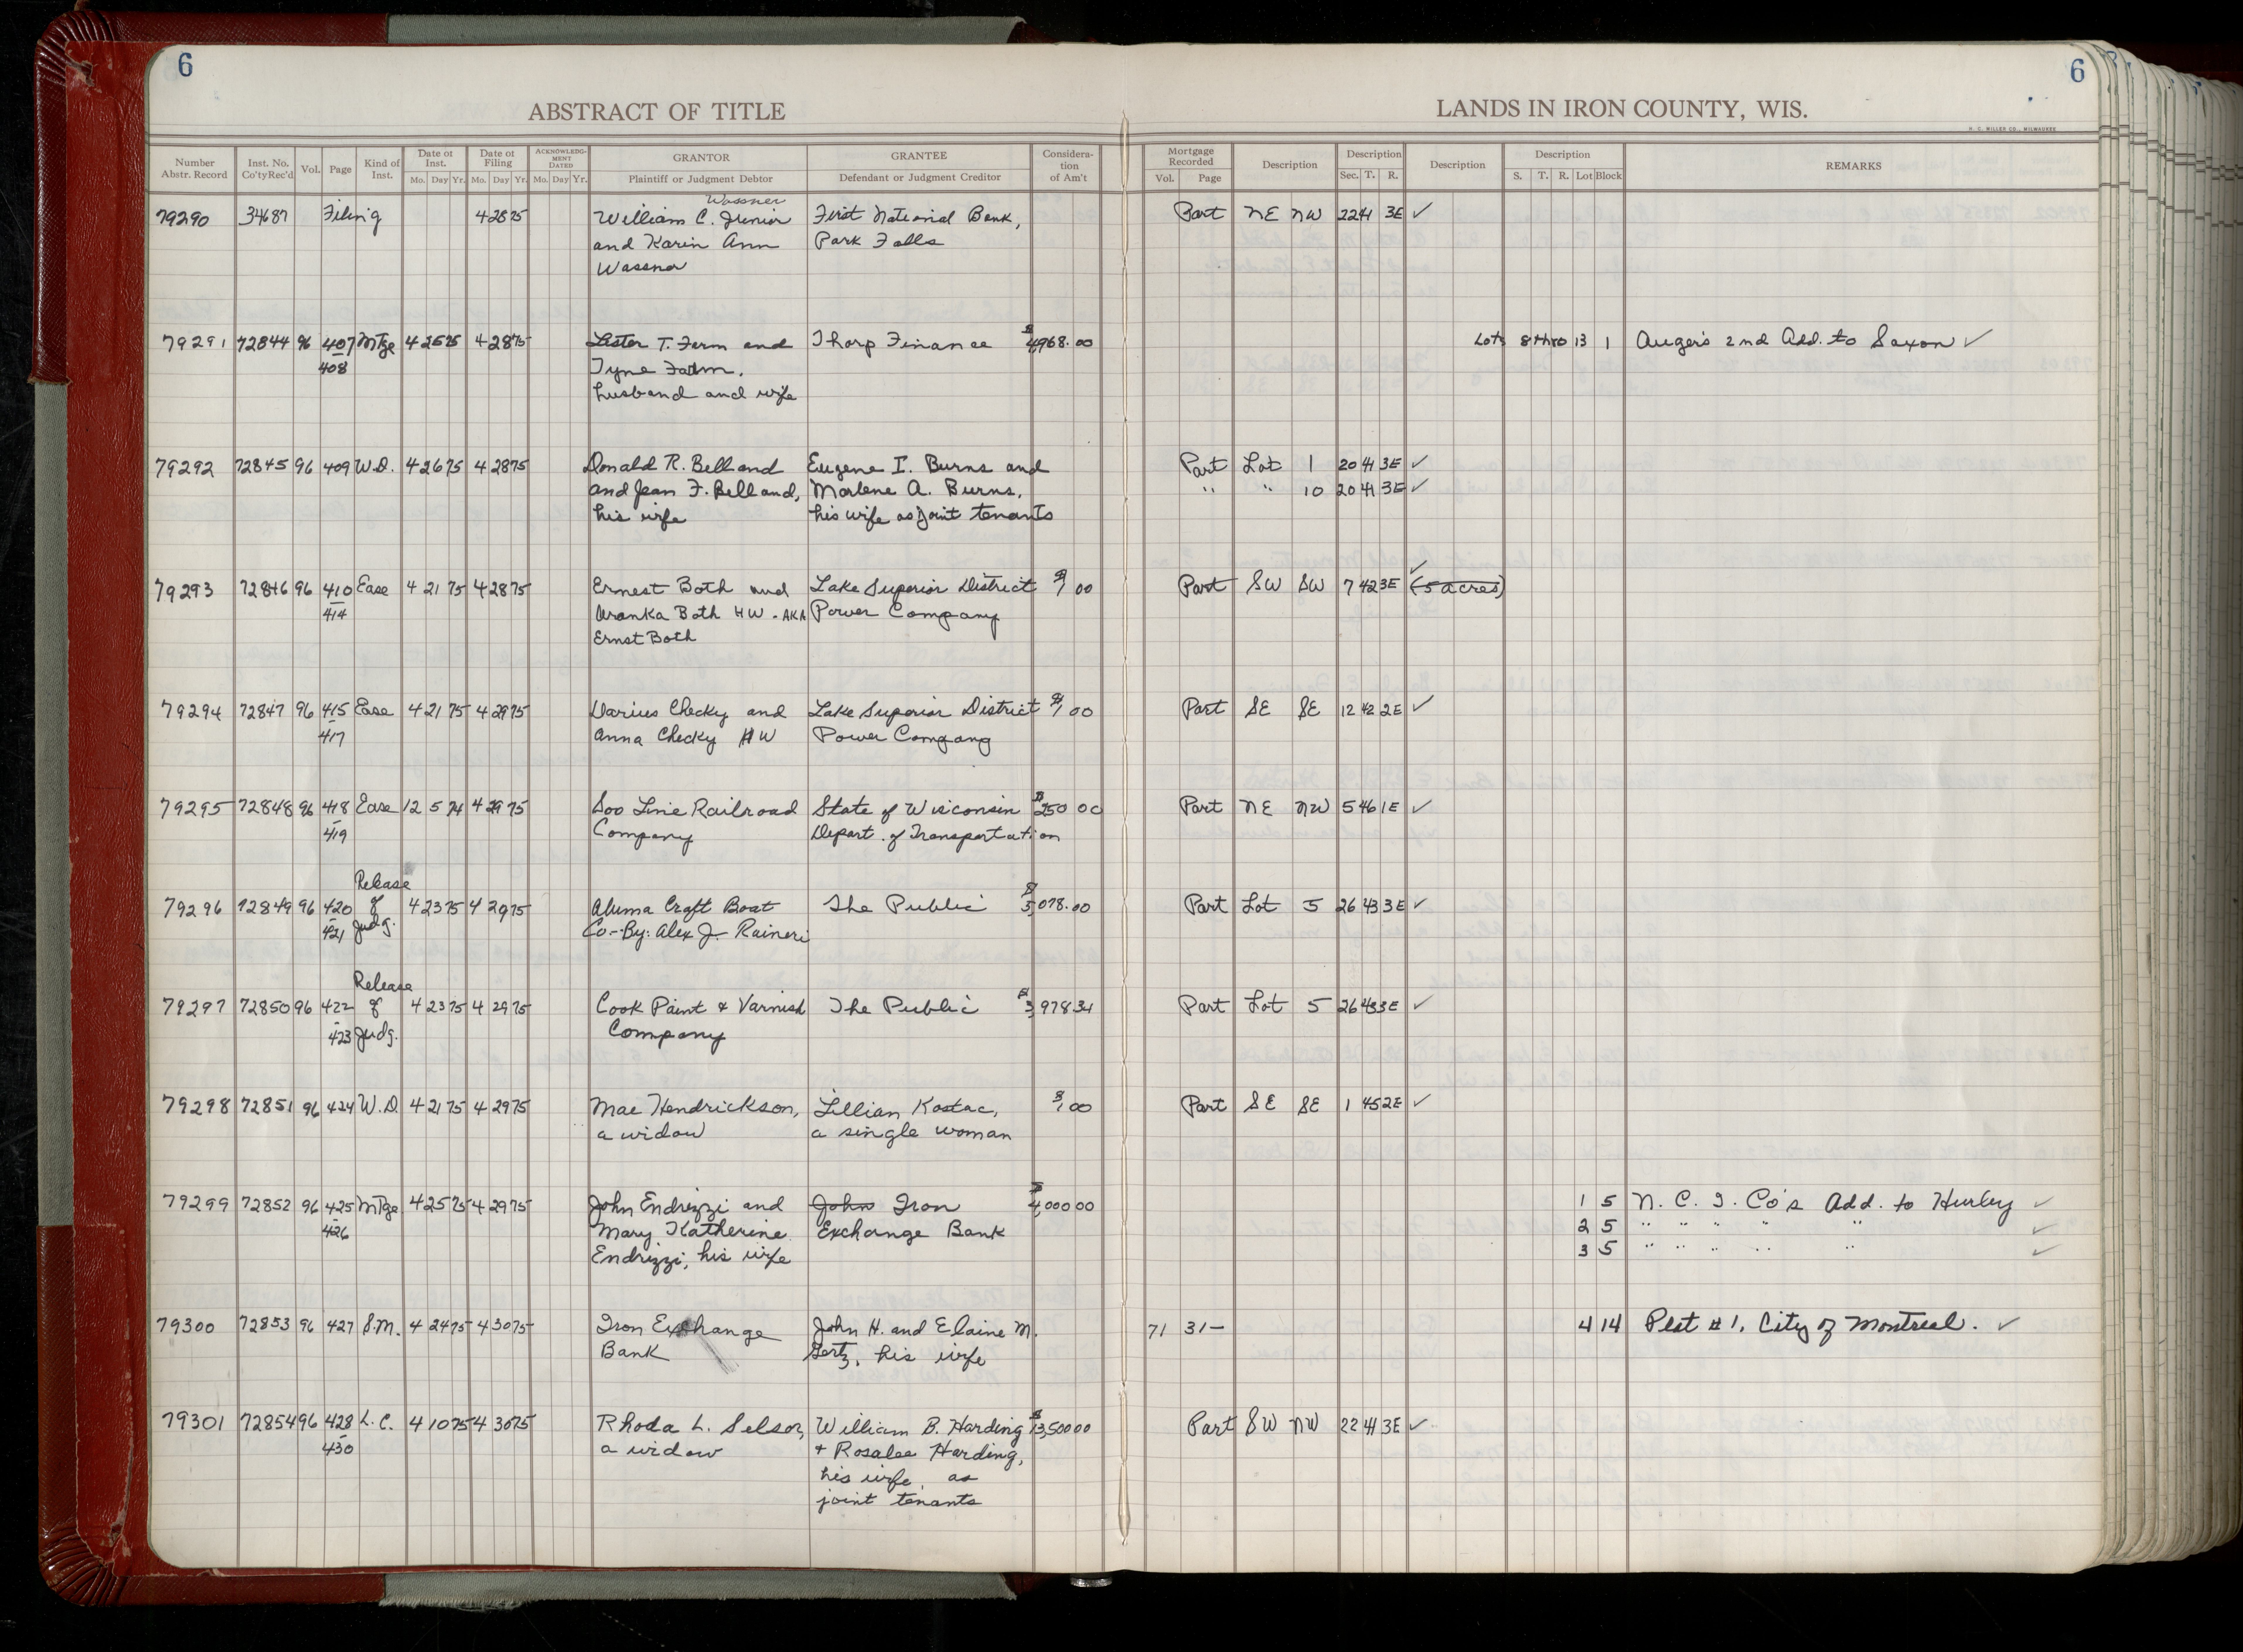 6
6
ABSTRACT OF TITLE
LANDS IN IRON COUNTY, WIS.
H. C. MILLER CO., MILWAUKEE
Number Abstr. Record Inst. No. Co'ty Rec'd Vol. Page Kind of Inst. Date of Inst. Mo. Day Yr. Date of Filing Mo. Day Yr. ACKNOWLEDG-MENT DATED Mo. Day Yr. GRANTOR Plaintiff or Judgment Debtor GRANTEE Defendant or Judgment Creditor Considera-tion of Am't Mortgage Recorded Vol. Page Description Description Sec. T. R. Description Description S. T. R. Lot Block REMARKS
Wassner
79290 34687 Filing 4 28 75 William C. Junior First National Bank, Part NE NW 22 41 3E ✓
and Karin Ann Park Falls
Wassner
79291 72844 96 407 Mtge 4 25 75 4 28 75 Lester T. Farm and Thorp Finance $4,968.00 Lots 8 thro 13 1 Auger's 2nd Add. to Saxon ✓
408 Tyne Farm,
husband and wife
79292 72845 96 409 W.D. 4 26 75 4 28 75 Donald R. Bell and Eugene I. Burns and Part Lot 1 20 41 3E ✓
and Jean F. Bell and, Marlene A. Burns, " " 10 20 41 3E ✓
his wife his wife as joint tenants
79293 72846 96 410 Ease 4 21 75 4 28 75 Ernest Both and Lake Superior District $1 00 Part SW SW 7 42 3E ✓ (5 acres)
414 Aranka Both HW - AKA Power Company
Ernst Both
79294 72847 96 415 Ease 4 21 75 4 29 75 Darius Checky and Lake Superior District $1 00 Part SE SE 12 42 2E ✓
417 Anna Checky HW Power Company
79295 72848 96 418 Ease 12 5 74 4 29 75 Soo Line Railroad State of Wisconsin $250 00 Part NE NW 5 46 1E ✓
419 Company Depart. of Transportation
Release
79296 72849 96 420 of 4 23 75 4 29 75 Aluma Craft Boat The Public $5,078.00 Part Lot 5 26 43 3E ✓
421 Judg. Co.- By: Alex J. Raineri
Release
79297 72850 96 422 of 4 23 75 4 29 75 Cook Paint & Varnish The Public $3,978.34 Part Lot 5 26 43 3E ✓
423 Judg. Company
79298 72851 96 424 W.D. 4 21 75 4 29 75 Mae Hendrickson, Lillian Kostac, $1.00 Part SE SE 1 45 2E ✓
a widow a single woman
79299 72852 96 425 Mtge 4 25 75 4 29 75 John Endrizzi and John Iron $4,000 00 1 5 N. C. I. Co's Add. to Hurley ✓
426 Mary Katherine Exchange Bank 2 5 " " " " " ✓
Endrizzi, his wife 3 5 " " " " " ✓
79300 72853 96 427 S.M. 4 24 75 4 30 75 Iron Exchange John H. and Elaine M. 71 31- 4 14 Plat #1, City of Montreal. ✓
Bank Gertz, his wife
79301 72854 96 428 L.C. 4 10 75 4 30 75 Rhoda L. Selsor, William B. Harding $13,500 00 Part SW NW 22 41 3E ✓
430 a widow + Rosalee Harding,
his wife, as
joint tenants